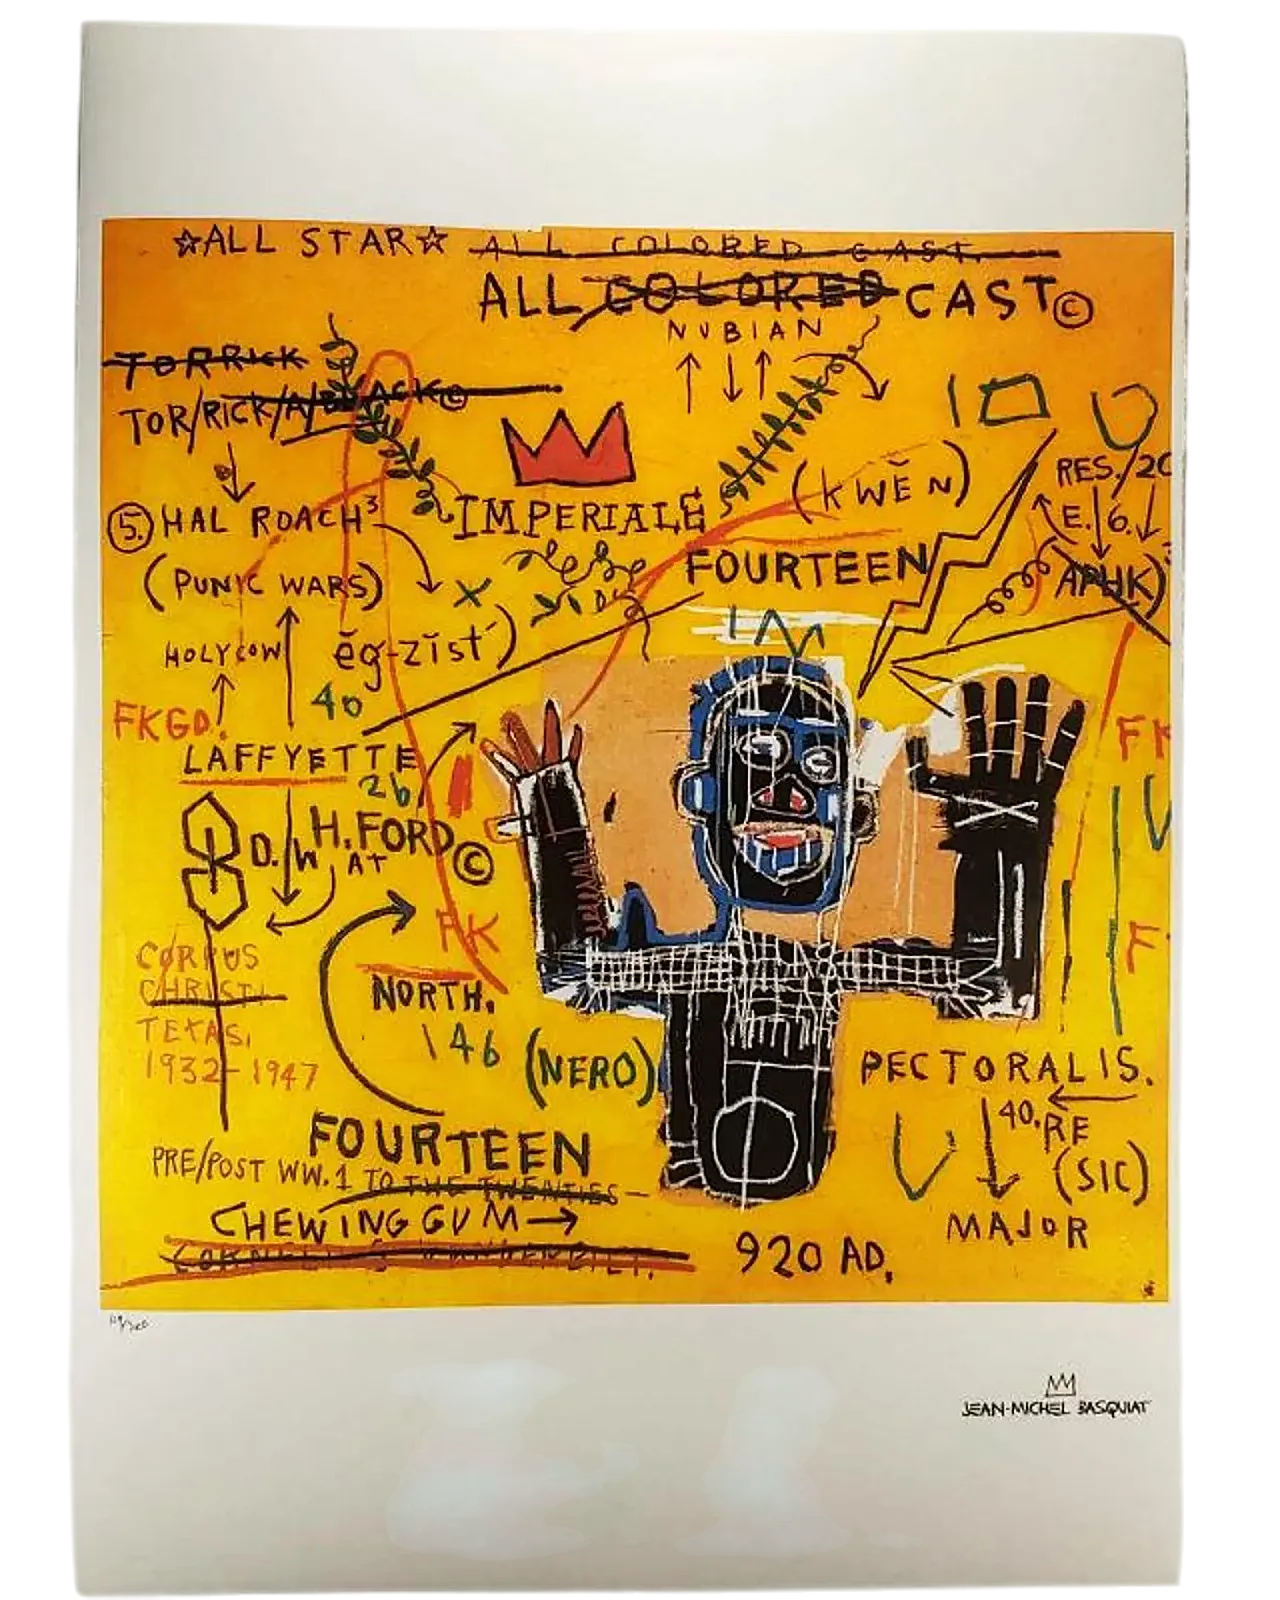 ☆ALL STAR☆ ALL COLORED CAST.
ALL COLORED CAST©
NUBIAN
TORRICK
TOR/RICK/A/BLACK©
(KWĔN)
RES./20
IMPERIALE
5. HAL ROACH³
E.|6.
FOURTEEN
(PUNIC WARS)
APHK)
HOLY COW
ĕg-zĭst´)
40
FKGD.
LAFFYETTE
26
H.FORD©
D./W AT
FK
CORPUS
CHRISTI
NORTH.
TEXAS,
146
(NERO)
1932-1947
PECTORALIS.
40. RE
FOURTEEN
(SIC)
PRE/POST WW.1 TO THE TWENTIES
CHEWING GUM→
MAJOR
920 AD.
JEAN-MICHEL BASQUIAT